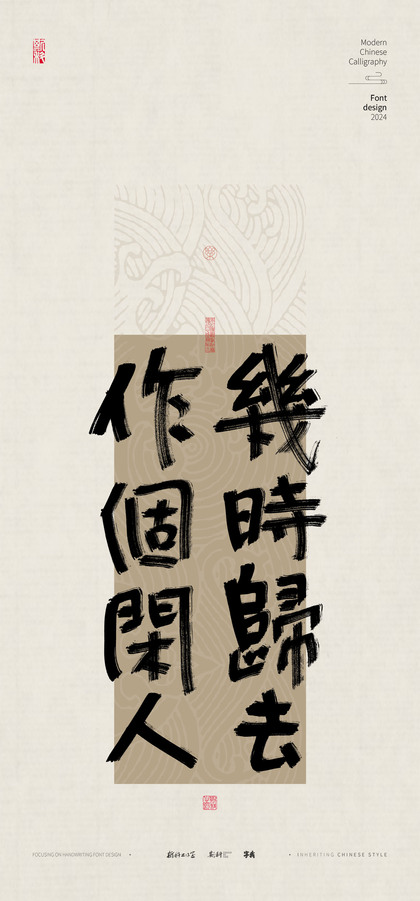 Modern
Chinese
Calligraphy
Font
design
2024
幾時歸去
作個閑人
FOCUSING ON HANDWRITING FONT DESIGN
字典
INHERITING CHINESE STYLE